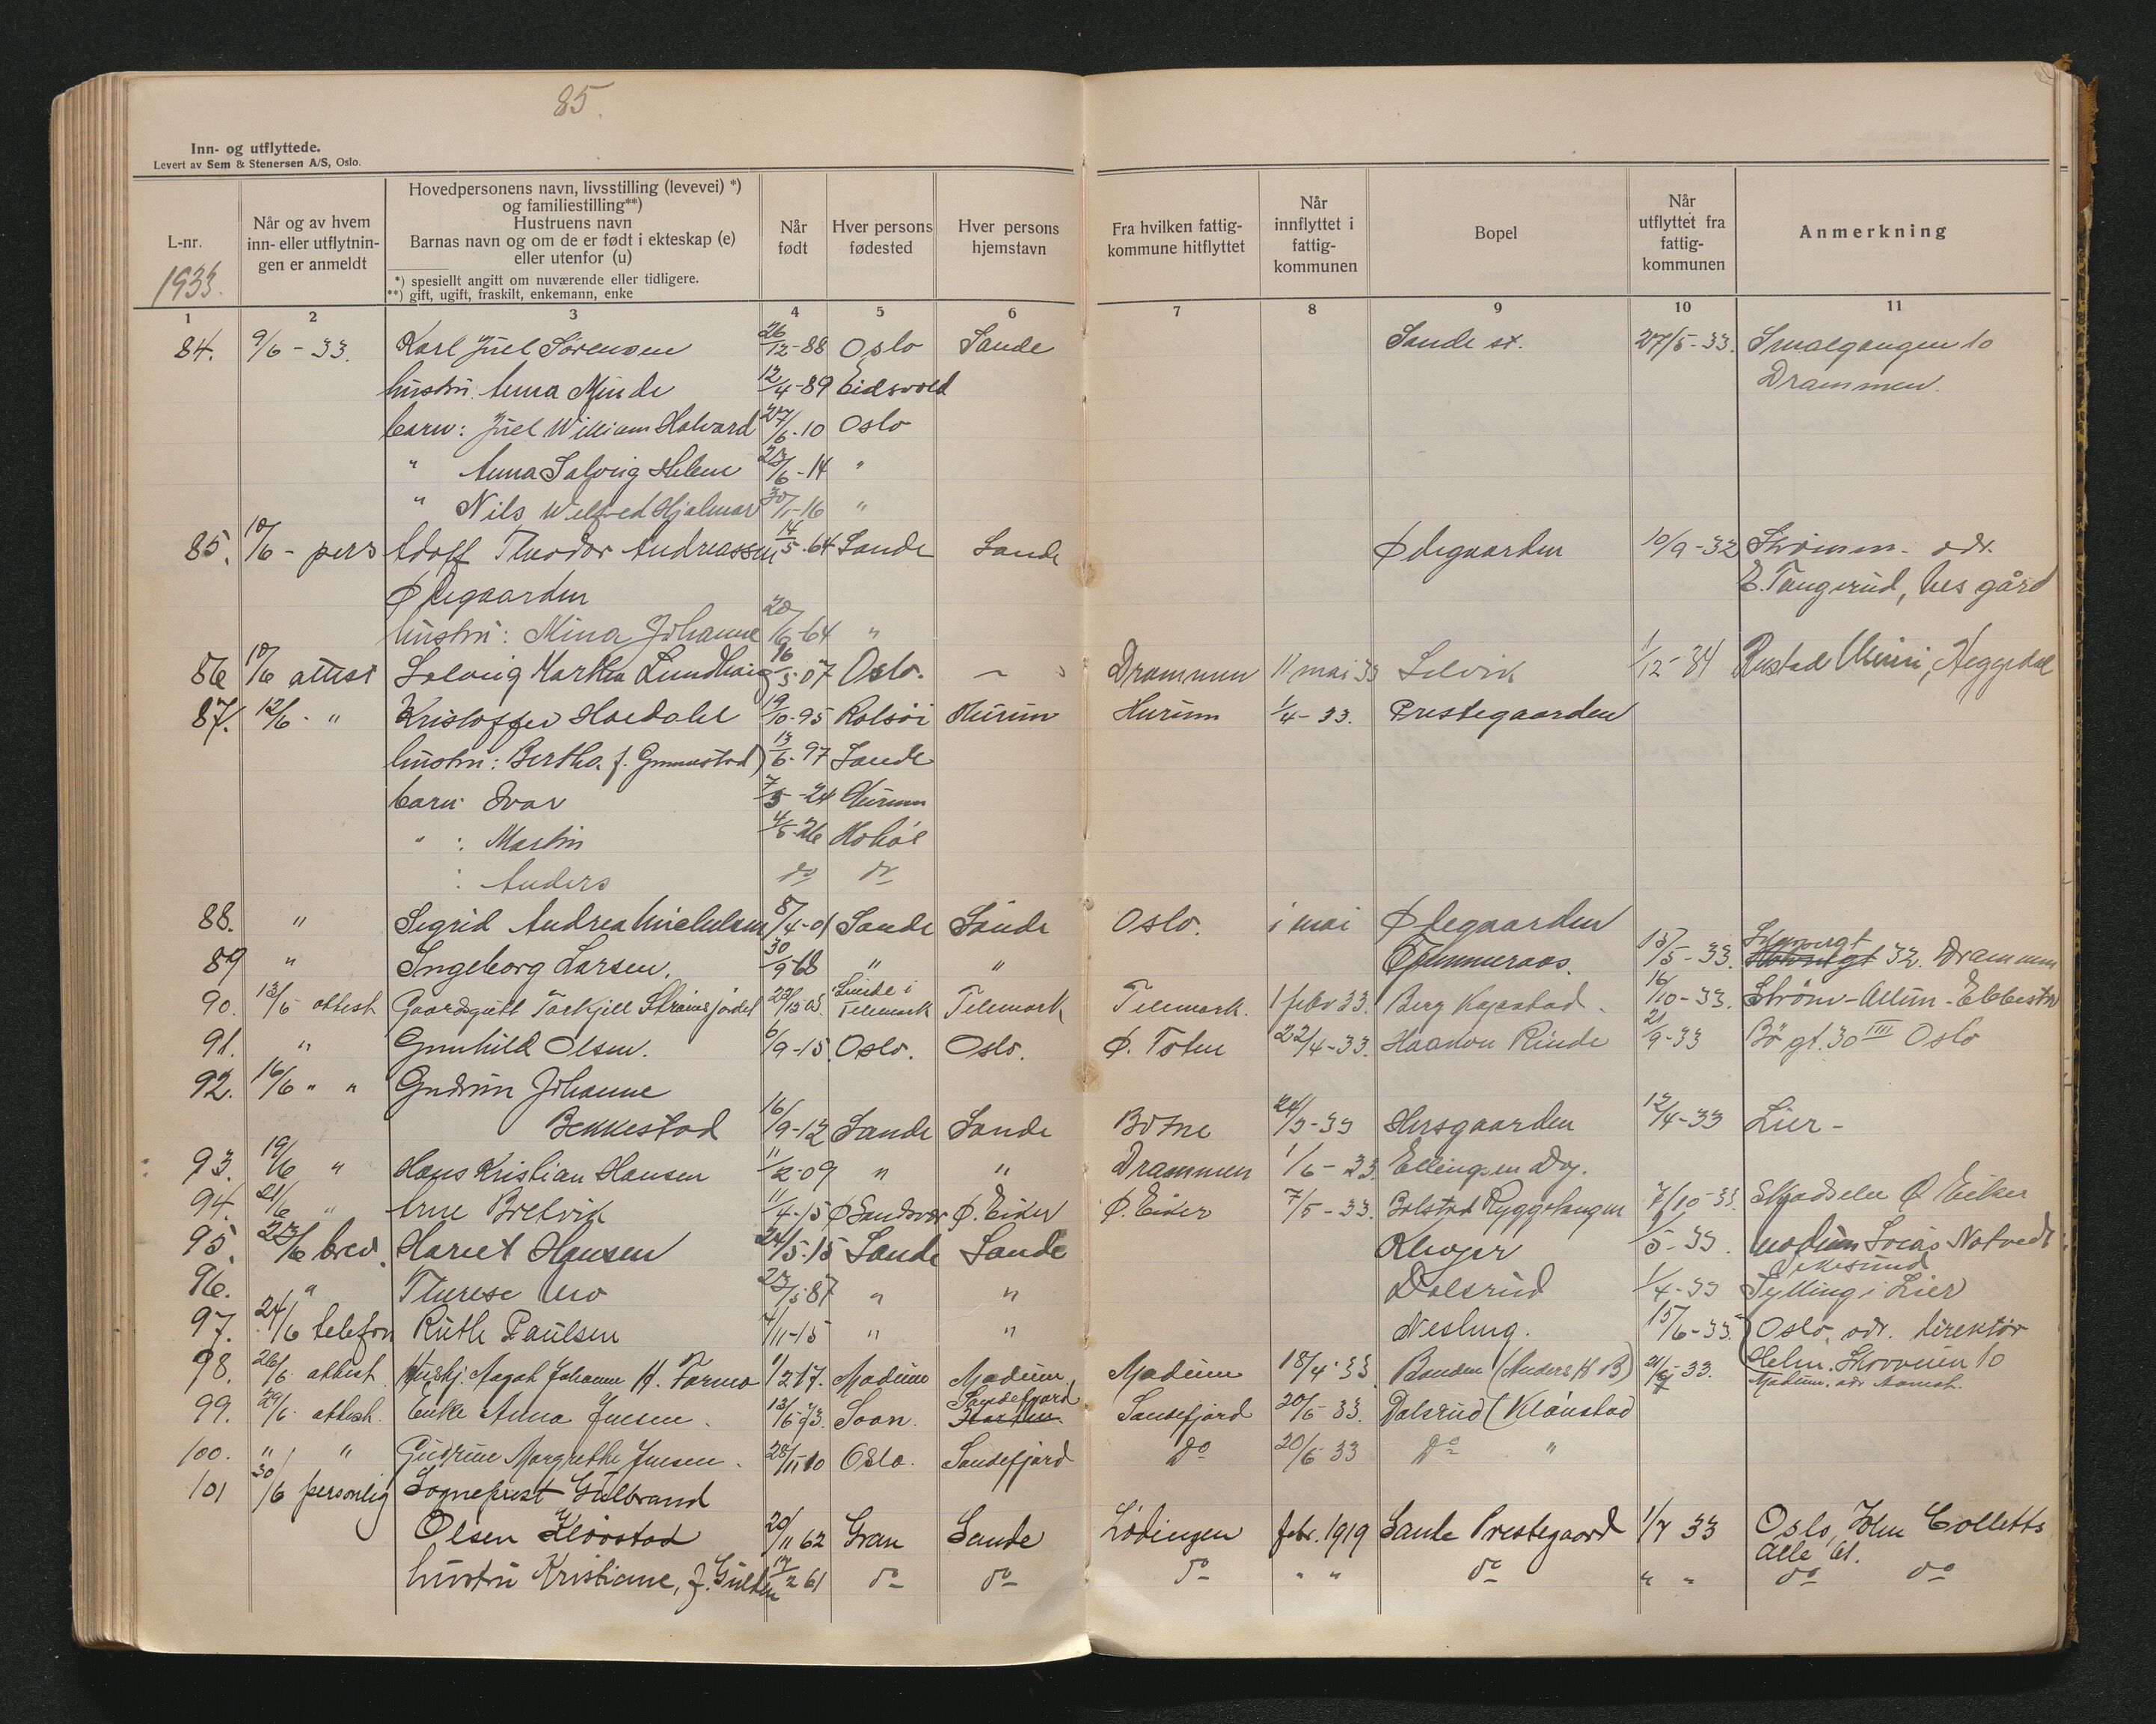 85.
Inn- og utflyttede.
Levert av Sem & Stenersen A/S, Oslo.
L-nr.
1933.
Når og av hvem
inn- eller utflytnin-
gen er anmeldt
Hovedpersonens navn, livsstilling (levevei) *)
og familiestilling**)
Hustruens navn
Barnas navn og om de er født i ekteskap (e)
eller utenfor (u)
*) spesiellt angitt om nuværende eller tidligere.
**) gift, ugift, fraskilt, enkemann, enke
Når
født
Hver persons
fødested
Hver persons
hjemstavn
Fra hvilken fattig-
kommune hitflyttet
Når
innflyttet i
fattig-
kommunen
Bopel
Når
utflyttet fra
fattig-
kommunen
Anmerkning
1 2 3 4 5 6 7 8 9 10 11
84. 9/6 - 33. Karl Juel Sørensen 26/12-88 Oslo Sande Sande st. 27/5-33. Smalgangen 10
hustru: Anna Minde 12/4-89 Eidsvold Drammen.
barn: Juel William Halvard 27/6-10 Oslo
" Anna Solveig Helene 23/6-14 "
" Nils Welfred Hjalmar 30/1-16 "
85. 10/6 - pers Adolf Theodor Andreassen 14/5-64 Sande Sande Ødegaarden 10/9-32 Strømm. adr.
Ødegaarden E. Tangerud, hes gård
hustru: Mina Johanne 20/6-64 "
86 10/6 attest Solveig Martha 16/5-07 Oslo. Drammen 11 mai 33 Selvik 1/12-34 Rustad Heggedal
87. 12/6 - " Kristoffer Hoedahl 19/10-95 Rolsøi Hurum Hurum 1/4-33. Prestegaarden
hustru: Bertha f. 13/6-97 Sande
barn: Ivar 7/5-24 Hurum
" : Martin 4/5-26 Hobøl
: Anders do do
88. " Sigrid Andrea Michelsen 8/4-01 Sande Sande Oslo. i mai Ødegaarden
89 " Ingeborg Larsen. 30/9-68 " " 15/5-33. 32. Drammen
90. 13/6 attest Gaardsgutt Torkjell Telemark Telemark Telemark. 1 febr 33. Berg 16/10-33. Strøm-
91. " Gunhild Olsen. 6/9-15. Oslo. Oslo. Ø. Toten 22/4-33. Haakon Rinde 21/9-33 Bö gt. 30 III Oslo
92. 16/6 " " Gudrun Johanne
Bekkestad 16/9-12 Sande Sande Botne 24/3-33 Hersgaarden 12/4-33 Lier -
93. 19/6 " Hans Kristian Hansen 11/2-09 " " Drammen 1/6-33 Ellingsen
94. 21/6 " Arne Bretvik 11/4-15 Ø Sandsvær Ø. Eiker Ø. Eiker 7/5-33. Bolstad 7/10-33. Ø Eiker
95. 23/6 brev. Hariet Hansen 24/5-15 Sande Sande Klever 1/5-33. Modum
96. " Therese Mo 23/5 87 " " Dalsrud 1/4-33 Sylling i Lier
97. 24/6 telefon Ruth Paulsen 7/11-15 " " Nesling. 15/6-33. Oslo, adr. direktör
98. 26/6 attest Hushj. Aagot Johanne H. Formo 1/2 17. Modum Modum. Modum 18/4 33. Banden (Anders K B) 21/6-33. 10
99. 29/6. attest. Enke Anna Jensen. 13/6-73. Soon. Sandefjord Sandefjord 20/6-33. Dalsrud (Klåvstad
100. " " Gudrun Margrethe Jensen. 28/11 10 Oslo. Sandefjord do 20/6 33 do "
101 30/6 personlig Sogneprest Gulbrand
Olsen Klövstad 20/11 62 Gran Sande Lödingen febr. 1919 Sande Prestegaard 1/7 33 Oslo, John Colletts
Alle 61.
hustru Kristiane, f. Gulden 17/2 61 do do do " " do " " do do